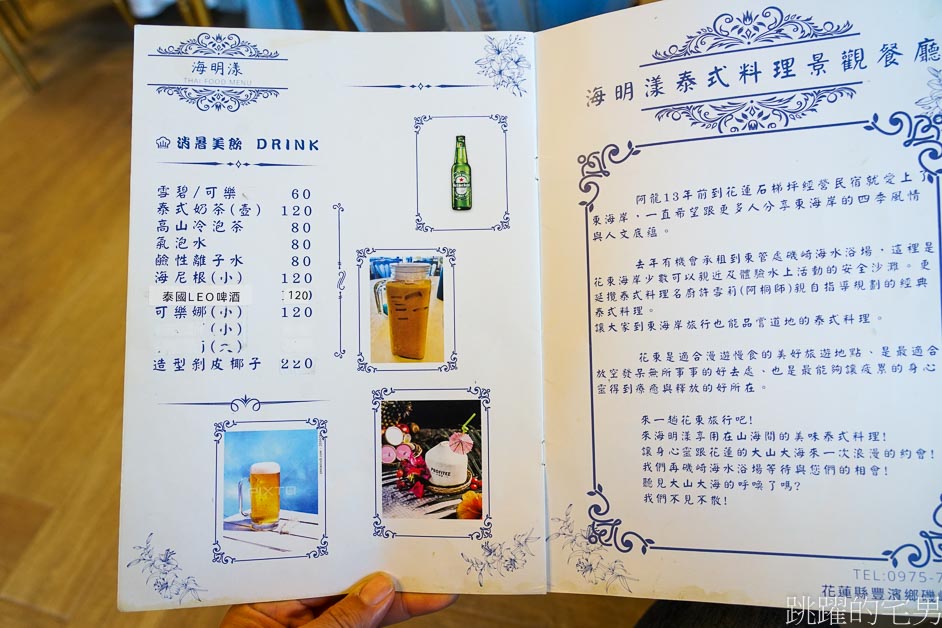 海明漾
THAI FOOD MENU
消暑美飲 DRINK
雪碧/可樂 60
泰式奶茶(壺) 120
高山冷泡茶 80
氣泡水 80
鹼性離子水 80
海尼根(小) 120
泰國LEO啤酒 120)
可樂娜(小) 120
(小)
造型剝皮椰子 220
海明漾泰式料理景觀餐廳
阿龍13年前到花蓮石梯坪經營民宿就愛上了
東海岸，一直希望跟更多人分享東海岸的四季風情
與人文底蘊。
去年有機會承租到東管處磯崎海水浴場，這裡是
花東海岸少數可以親近及體驗水上活動的安全沙灘。更
延攬泰式料理名廚許雪莉(阿桐師)親自指導規劃的經典
泰式料理。
讓大家到東海岸旅行也能品嘗道地的泰式料理。
花東是適合漫遊慢食的美好旅遊地點、是最適合
放空發呆無所事事的好去處、也是最能夠讓疲累的身心
靈得到療癒與釋放的好所在。
來一趟花東旅行吧!
來海明漾享用在山海間的美味泰式料理!
讓身心靈跟花蓮的大山大海來一次浪漫的約會!
我們再磯崎海水浴場等待與您們的相會!
聽見大山大海的呼喚了嗎?
我們不見不散!
TEL:0975-7
花蓮縣豐濱鄉磯崎
跳躍的宅男